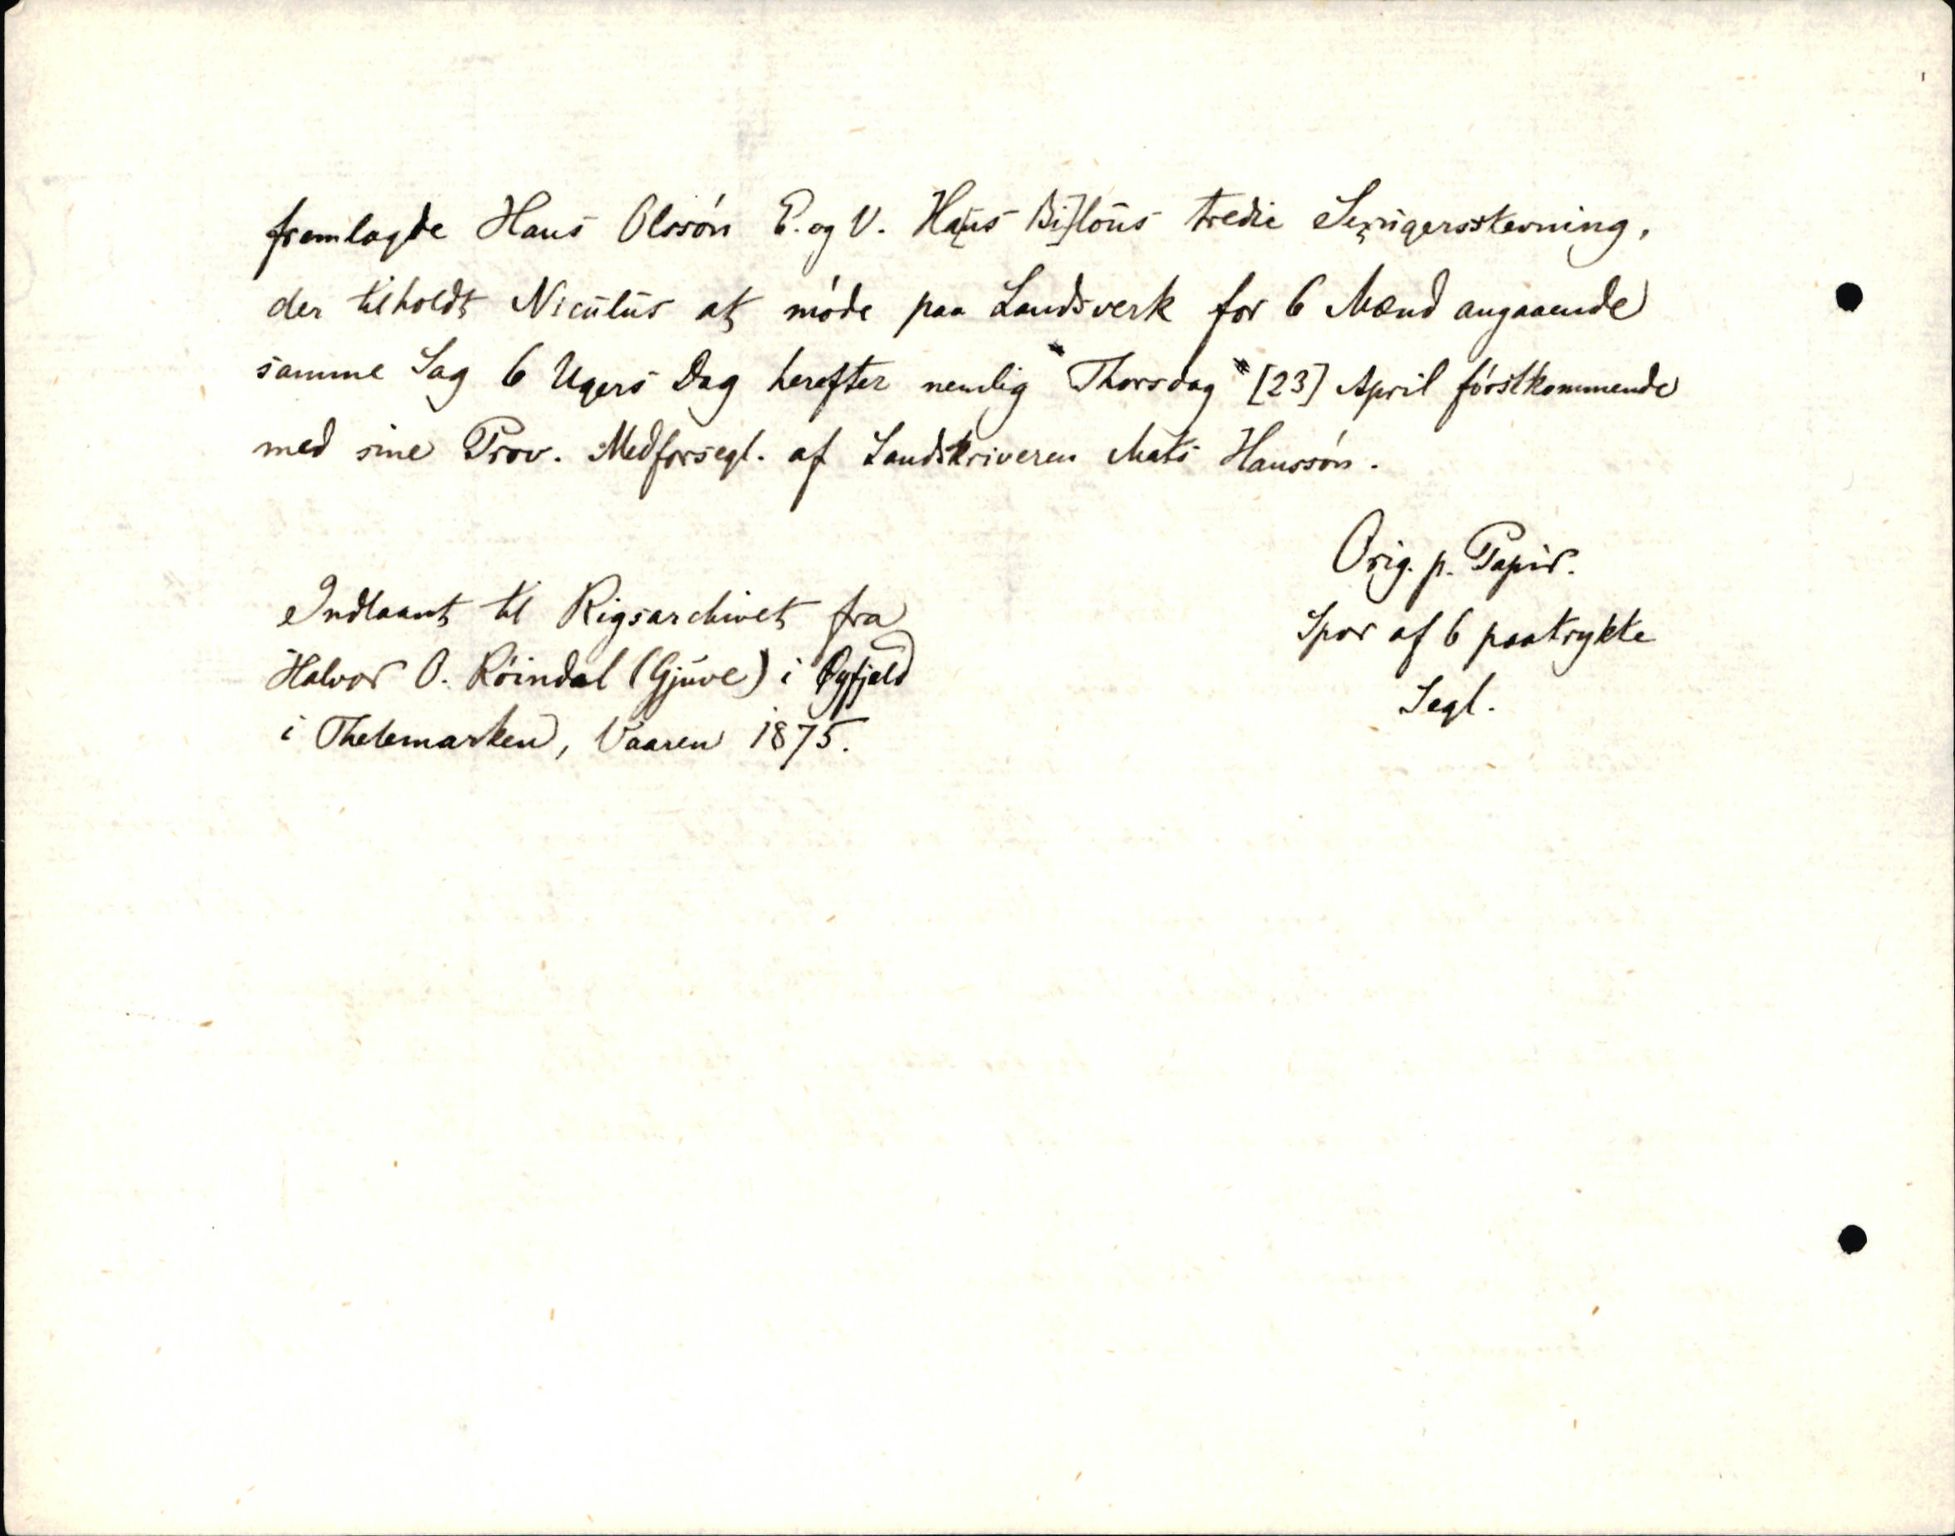 fremlagde Hans Olssón E. og V. Ha[ns Bi]lóús tredie Sexúgersstevning,
der tilholdt Niculús at móde paa Landsverk for 6 Mænd angaaende
samme Sag 6 Ugers Dag herefter nemlig "Thorsdag" [23] April fórstkommende
med sine Prov. Medforsegl. af Landskriveren Mats Hanssón.
Orig. p. Papir.
Spor af 6 paatrykte
Segl.
Indlaant til Rigsarchivet fra
Halvor O. Róindal (Gjúve) i Øyfjeld
i Thelemarken, Vaaren 1875.